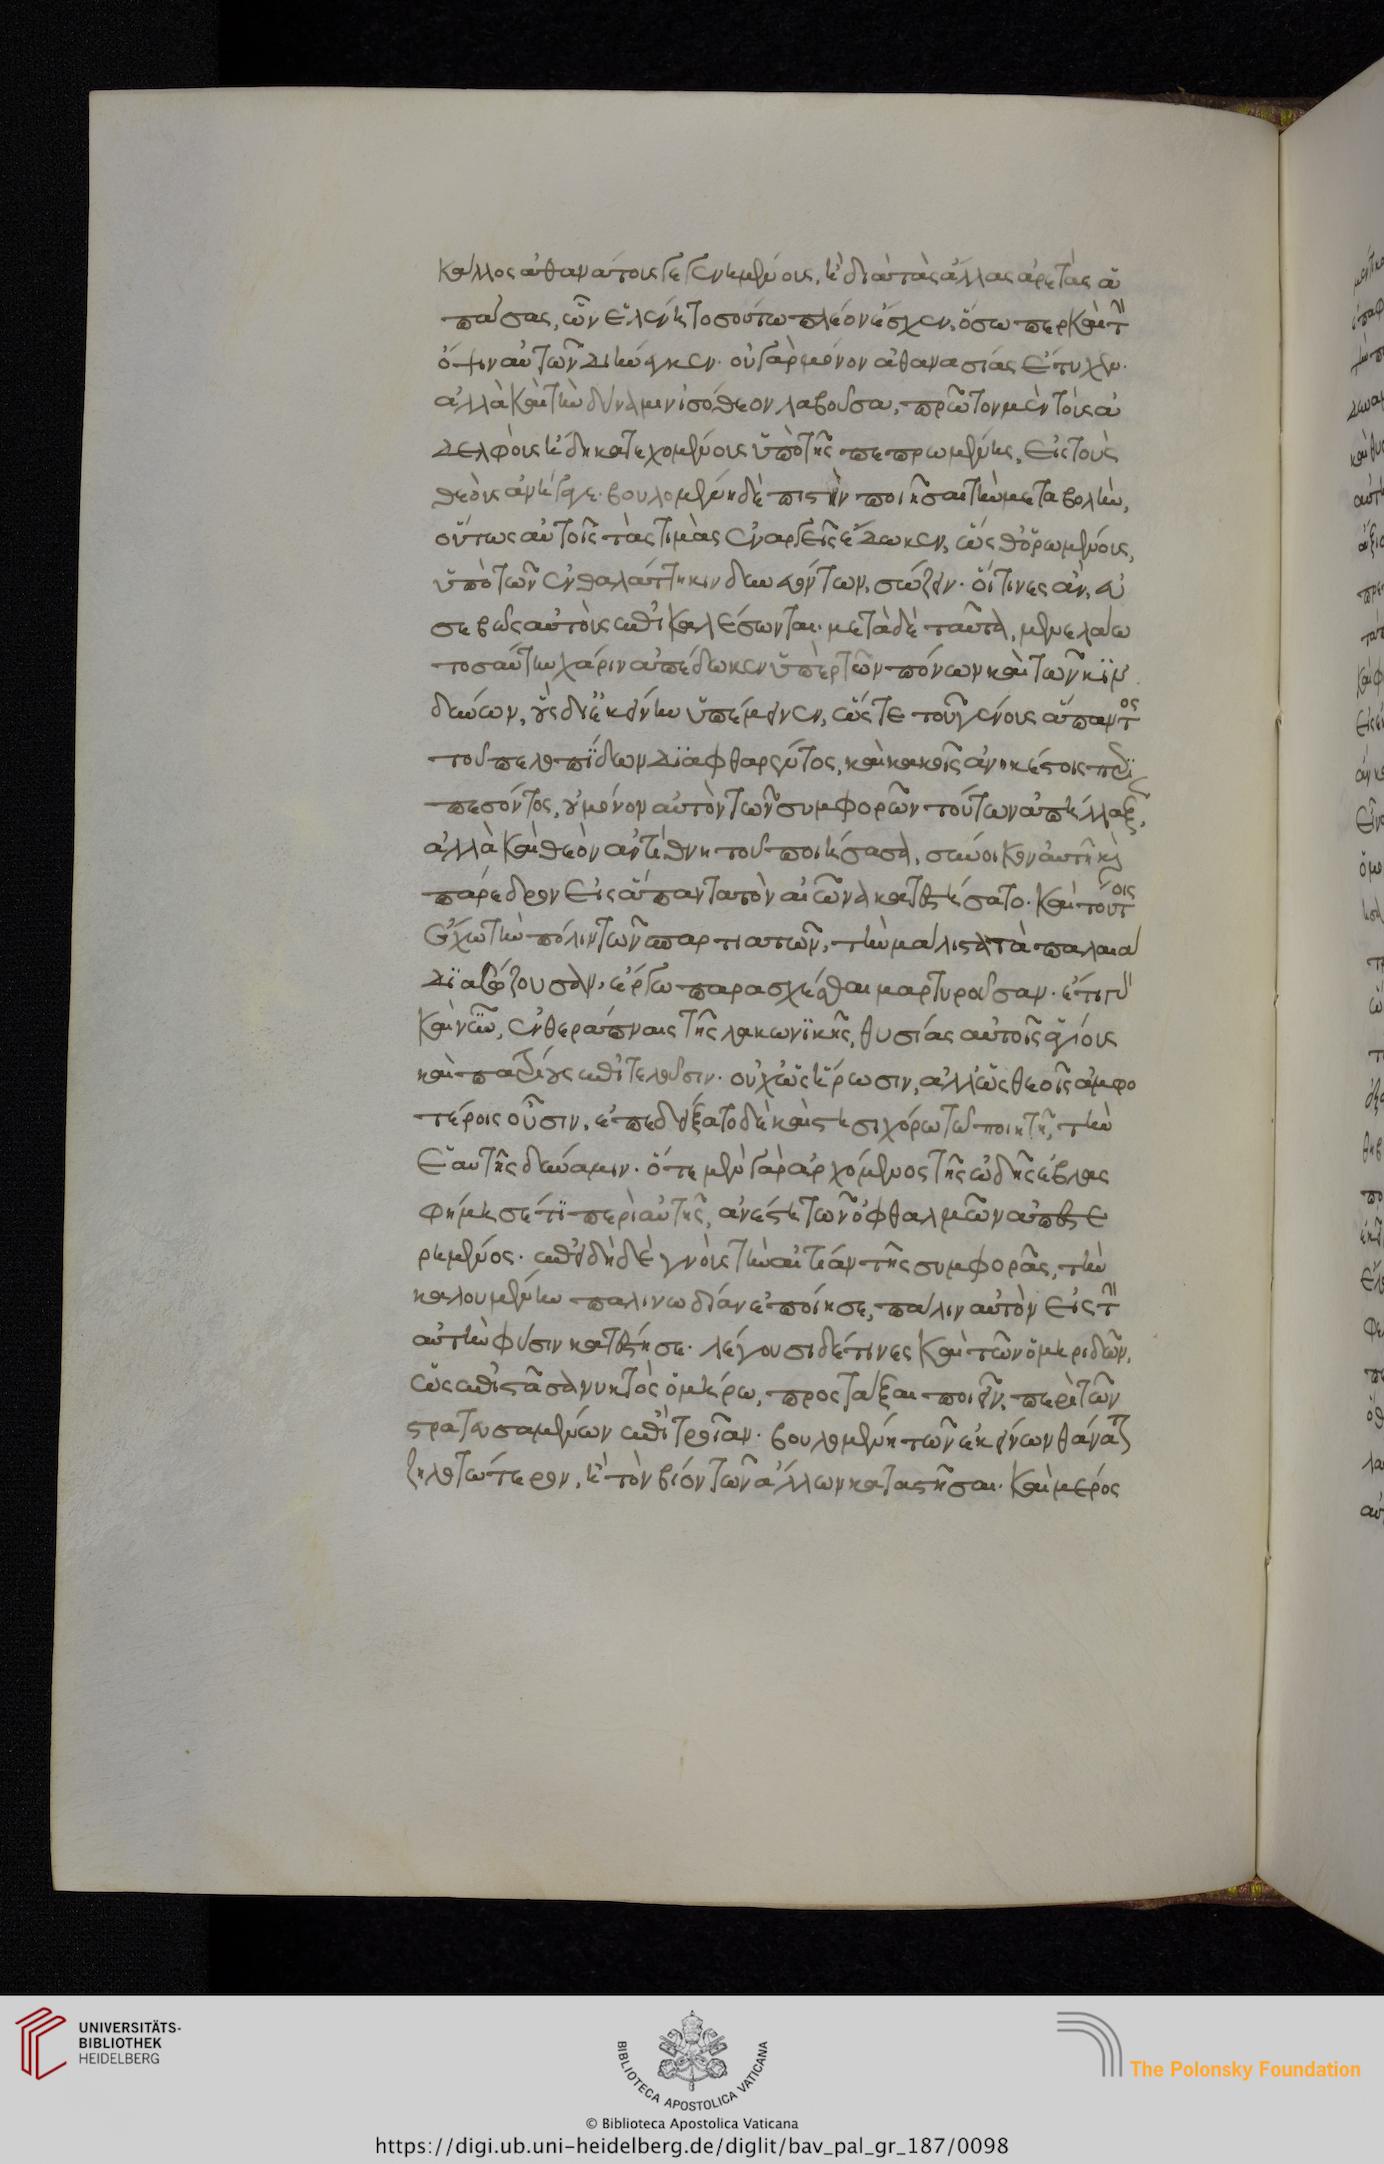 κάλλος ἀθανάτοις γεγενημένοις, ἢ διὰ τὰς ἄλλας ἀρετὰς ἁ
πάσας, ὧν Ἑλένη τοσούτω πλέον ἔσχεν, ὅσω περ καὶ τὴν
ὄψιν αὐτῶν διήνεγκεν. οὐ γὰρ μόνον ἀθανασίας ἔτυχεν.
ἀλλὰ καὶ τὴν δύναμιν ἰσόθεον λαβοῦσα, πρῶτον μὲν τοὺς ἀ
δελφοὺς ἤδη κατεχομένους ὑπὸ τῆς πεπρωμένης, εἰς τοὺς
θεοὺς ἀνήγαγε. βουλομένη δὲ πιστὴν ποιῆσαι τὴν μεταβολὴν,
οὕτως αὐτοῖς τὰς τιμὰς ἐναργεῖς ἔδωκεν, ὥσθ' ὁρωμένους,
ὑπὸ τῶν ἐν θαλάττη κινδυνευόντων, σώζειν. οἵτινες ἂν, εὐ
σεβῶς αὐτοὺς ἐπικαλέσωνται. μετὰ δὲ ταῦτα, μενελάω
τοσαύτην χάριν ἀπέδωκεν ὑπὲρ τῶν πόνων καὶ τῶν κιν
δύνων, οὓς δι' ἐκείνην ὑπέμεινεν, ὥστε τοῦ γένους ἅπαντος
τοῦ πελοπιδῶν διαφθαρέντος, καὶ κακοῖς ἀνηκέστοις περι
πεσόντος, οὐ μόνον αὐτὸν τῶν συμφορῶν τούτων ἀπήλλαξεν,
ἀλλὰ καὶ θεὸν ἀντὶ θνητοῦ ποιήσασα, σύνοικον αὐτῆ καὶ
πάρεδρον εἰς ἅπαντα τὸν αἰῶνα κατεστήσατο. καὶ τούτοις
ἔχω τὴν πόλιν τῶν σπαρτιατῶν, τὴν μάλιστα τὰ παλαιὰ
διασώζουσαν, ἔργω παρασχέσθαι μαρτυροῦσαν. ἔτι γὰρ
καὶ νῦν, ἐν θεράπναις τῆς λακωνικῆς, θυσίας αὐτοῖς ἁγίους
καὶ πατρίους ἐπιτελοῦσιν. οὐχ ὡς ἥρωσιν, ἀλλ' ὡς θεοῖς ἀμφο
τέροις οὖσιν. ἐπεδείξατο δὲ καὶ στησιχόρω τῶ ποιητῆ, τὴν
ἑαυτῆς δύναμιν. ὅτε μὲν γὰρ ἀρχόμενος τῆς ὠδῆς ἐβλασ
φήμησέ τι περὶ αὐτῆς, ἀνέστη τῶν ὀφθαλμῶν ἀπεστε
ρημένος. ἐπειδὴ δὲ γνοὺς τὴν αἰτίαν τῆς συμφορᾶς, τὴν
καλουμένην παλινωδίαν ἐποίησε, πάλιν αὐτὸν εἰς τὴν
αὐτὴν φύσιν κατέστησε. λέγουσι δέ τινες καὶ τῶν ὁμηριδῶν,
ὡς ἐπιστᾶσα νυκτὸς ὁμήρω, προστάξαι ποιεῖν, περὶ τῶν
στρατευσαμένων ἐπὶ τροίαν. βουλομένη τῶν ἐκείνων θάνατον
ζηλωτότερον, ἢ τὸν βίον τῶν ἄλλων καταστῆσαι. καὶ μέρος
UNIVERSITÄTS-
BIBLIOTHEK
HEIDELBERG
BIBLIOTECA APOSTOLICA VATICANA
The Polonsky Foundation
© Biblioteca Apostolica Vaticana
https://digi.ub.uni-heidelberg.de/diglit/bav_pal_gr_187/0098